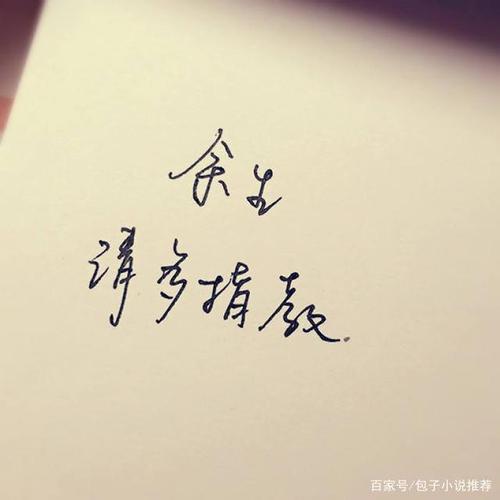 余生
请多指教.
百家号/包子小说推荐